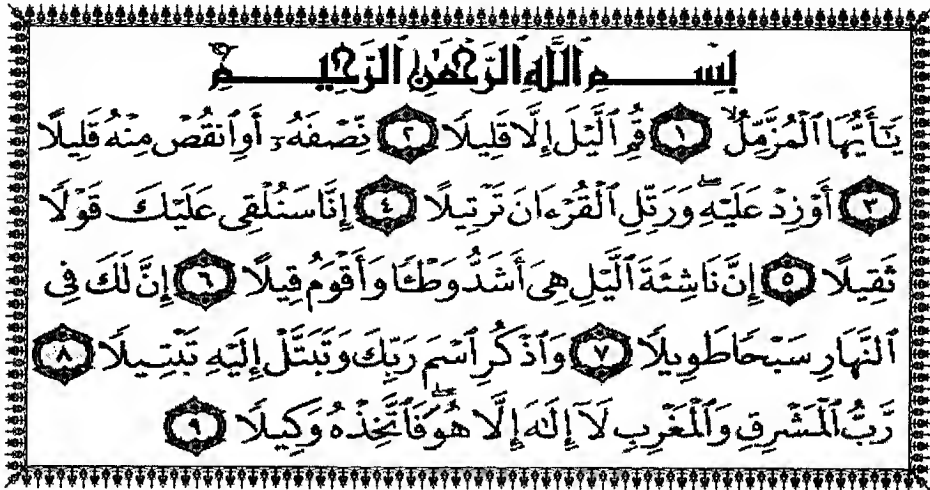 بِسْمِ ٱللَّهِ ٱلرَّحْمَٰنِ ٱلرَّحِيمِ
يَٰٓأَيُّهَا ٱلْمُزَّمِّلُ ١ قُمِ ٱلَّيْلَ إِلَّا قَلِيلًا ٢ نِّصْفَهُۥٓ أَوِ ٱنقُصْ مِنْهُ قَلِيلًا
٣ أَوْ زِدْ عَلَيْهِ وَرَتِّلِ ٱلْقُرْءَانَ تَرْتِيلًا ٤ إِنَّا سَنُلْقِى عَلَيْكَ قَوْلًا
ثَقِيلًا ٥ إِنَّ نَاشِئَةَ ٱلَّيْلِ هِىَ أَشَدُّ وَطْـًٔا وَأَقْوَمُ قِيلًا ٦ إِنَّ لَكَ فِى
ٱلنَّهَارِ سَبْحًا طَوِيلًا ٧ وَٱذْكُرِ ٱسْمَ رَبِّكَ وَتَبَتَّلْ إِلَيْهِ تَبْتِيلًا ٨
رَّبُّ ٱلْمَشْرِقِ وَٱلْمَغْرِبِ لَآ إِلَٰهَ إِلَّا هُوَ فَٱتَّخِذْهُ وَكِيلًا ٩